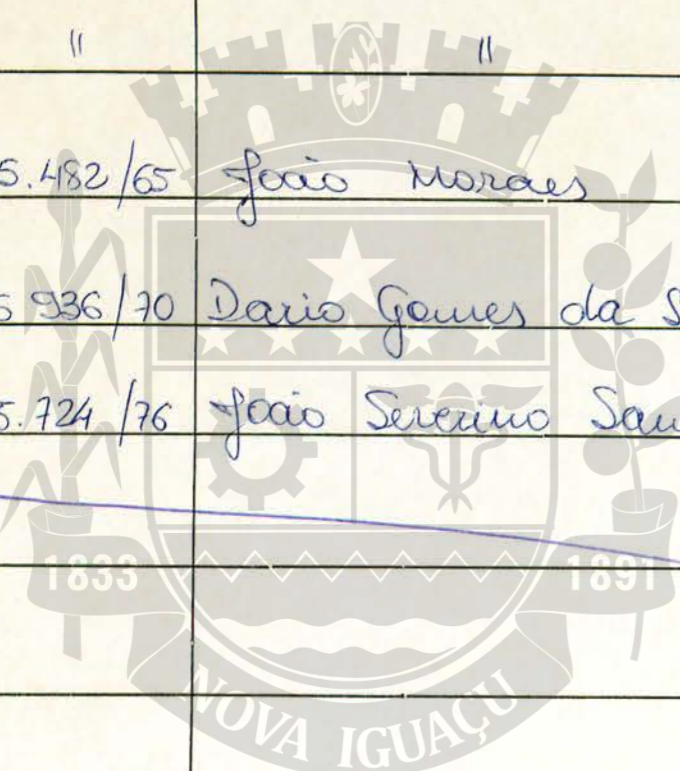 " "
5.482/65 João Moraes
5 936/70 Dario Gomes da S
5.724/76 João Severino San
1833 1891
NOVA IGUAÇU